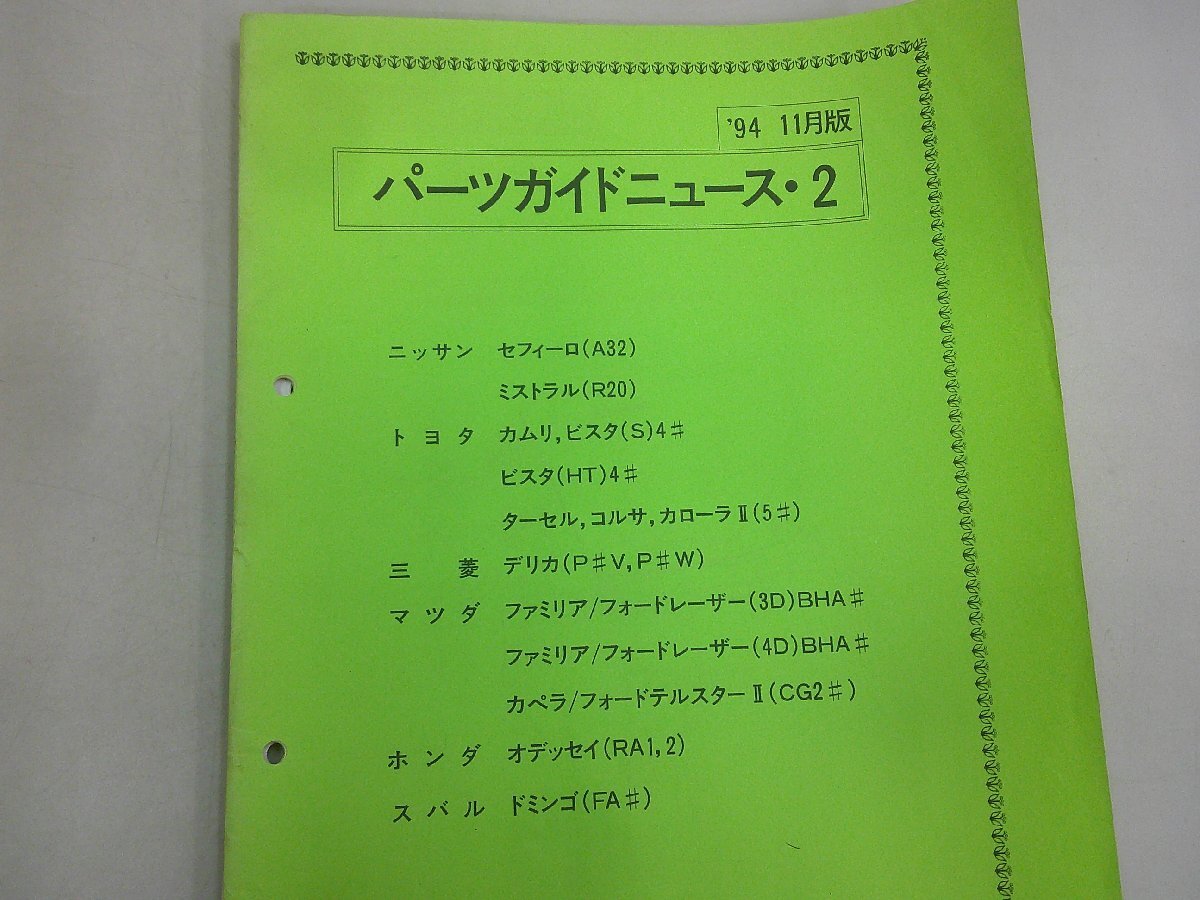 '94 11月版
パーツガイドニュース・2
ニッサン セフィーロ(A32)
ミストラル(R20)
トヨタ カムリ,ビスタ(S)4♯
ビスタ(HT)4♯
ターセル,コルサ,カローラⅡ(5♯)
三菱 デリカ(P♯V,P♯W)
マツダ ファミリア/フォードレーザー(3D)BHA♯
ファミリア/フォードレーザー(4D)BHA♯
カペラ/フォードテルスターⅡ(CG2♯)
ホンダ オデッセイ(RA1,2)
スバル ドミンゴ(FA♯)